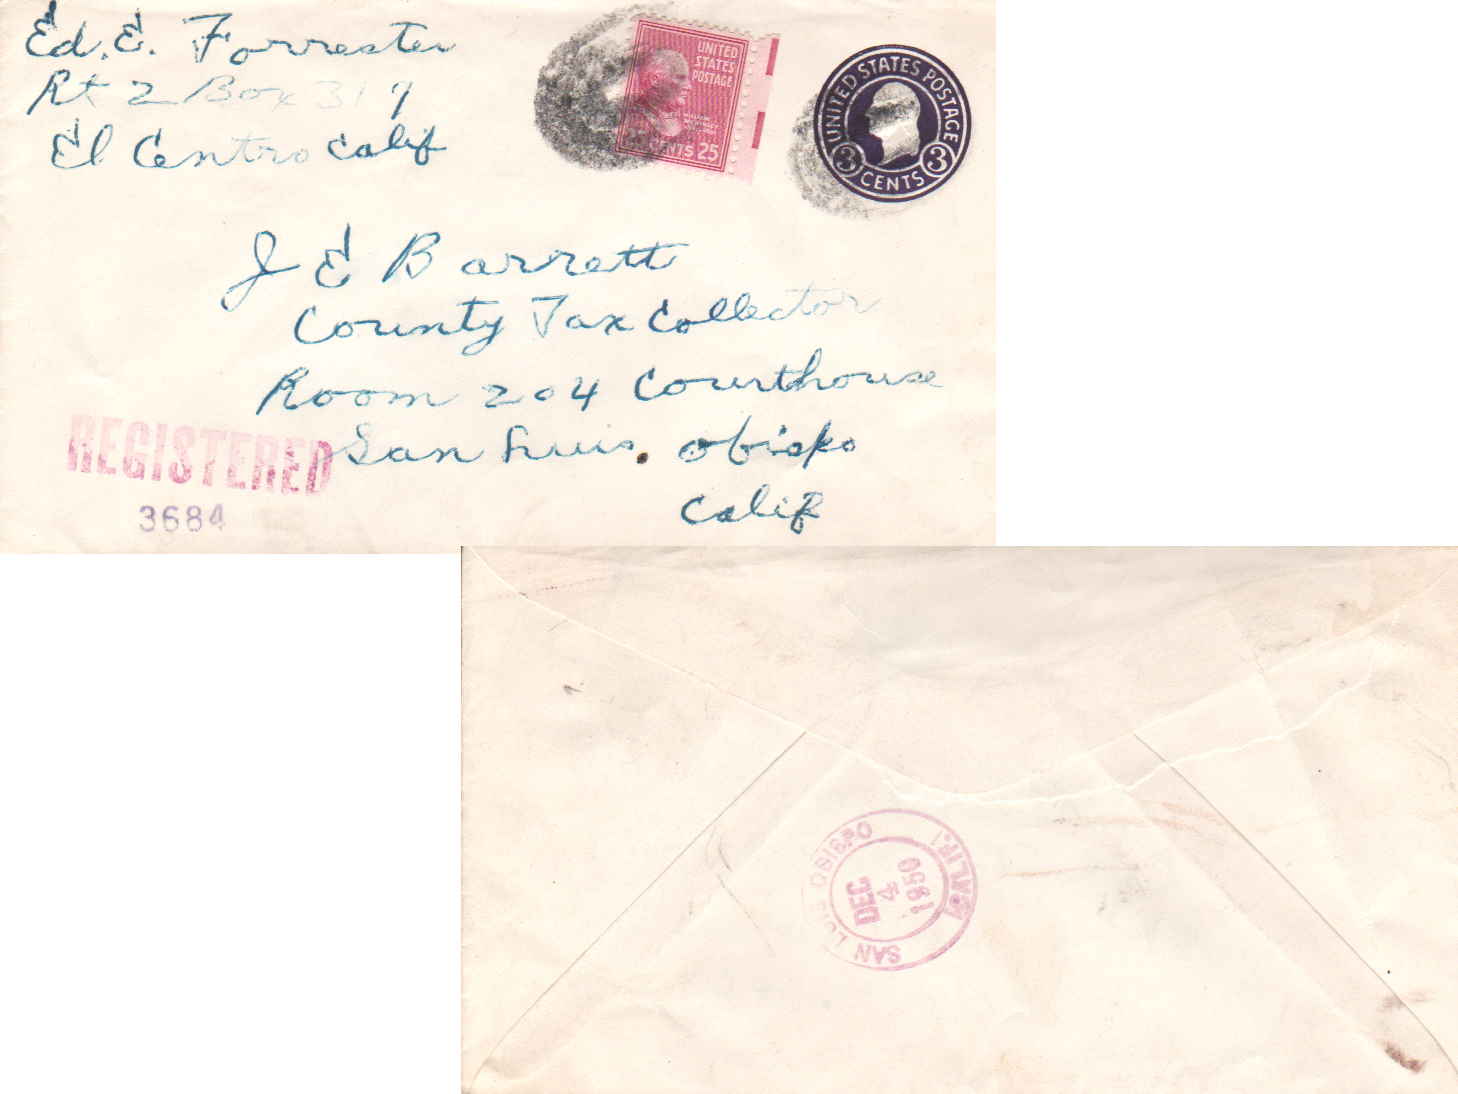 Ed. E. Forrester
Rt 2 Box 319
El Centro Calif
UNITED
STATES
POSTAGE
WILLIAM
CENTS 25
UNITED STATES POSTAGE
3 CENTS 3
J E Barrett
County Tax Collector
Room 204 Courthouse
San Luis. Obispo
Calif
REGISTERED
3684
SAN LUIS OBISPO
CALIF.
DEC
4
1950